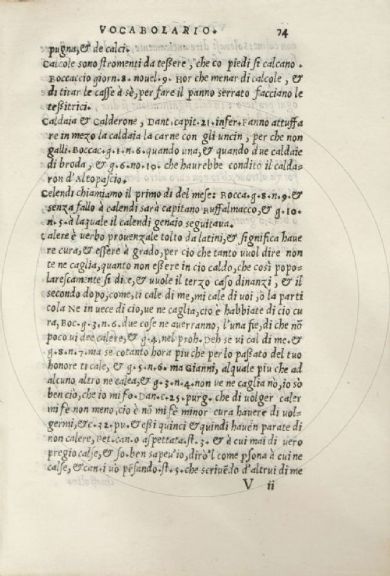 VOCABOLARIO. 74
pugna, & de calci.
Calcole sono stromenti da tessere, che co piedi si calcano.
Boccaccio giorn. 8. nouel. 9. Hor che menar di calcole, &
di tirar le casse à sè, per fare il panno serrato facciano le
tessitrici.
Caldaia & Calderone, Dant. capit. 21. infer. Fanno attuffa
re in mezo la caldaia la carne con gli uncin, per che non
galli. Bocc. g. 1. n. 6. quando una, & quando due caldaie
di broda, & g. 6. no. 10. che haurebbe condito il calda-
ron d'Altopascio.
Calendi chiamiamo il primo dì del mese: Bocca. g. 8. n. 9. &
senza fallo à calendi sarà capitano Buffalmacco, & g. 10.
n. 5. à laquale il calendi genaio seguitaua.
Calere è uerbo prouenzale tolto da latini, & significa haue
re cura, & essere à grado, per cio che tanto uuol dire non
te ne caglia, quanto non essere in cio caldo, che così popo-
larescamente si dice, & uuole il terzo caso dinanzi, & il
secondo dopo, come, ti cale di me, mi cale di uoi, ò la parti
cola Ne in uece di cio, ue ne caglia, cio è habbiate di cio cu
ra, Boc. g. 3. n. 6. due cose ne auerranno, l'una fie, di che nõ
poco ui dee calere, & g. 4. nel proh. Deh se ui cal di me. &
g. 8. n. 7. ma se cotanto hora piu che per lo passato del tuo
honore ti cale, & g. 5. n. 6. ma Gianni, alquale piu che ad
alcuno altro ne calea, & g. 3. n. 4. non ve ne caglia nò, io sò
ben cio, che io mi fo. Dan. c. 25. purg. che di uolger caler
mi fè non meno, cio è nõ mi fè minor cura hauere di uol-
germi, & c. 32. pu. & essi quinci & quindi hauen parate di
non calere, Pet. can. o aspettata. st. 3. & à cui mai di uero
pregio calse, & so. ben sapeu'io, dirò'l come psona à cui ne
calse, & can. i uò pẽsando. st. 5. che scriuẽdo d'altrui di me
V ii